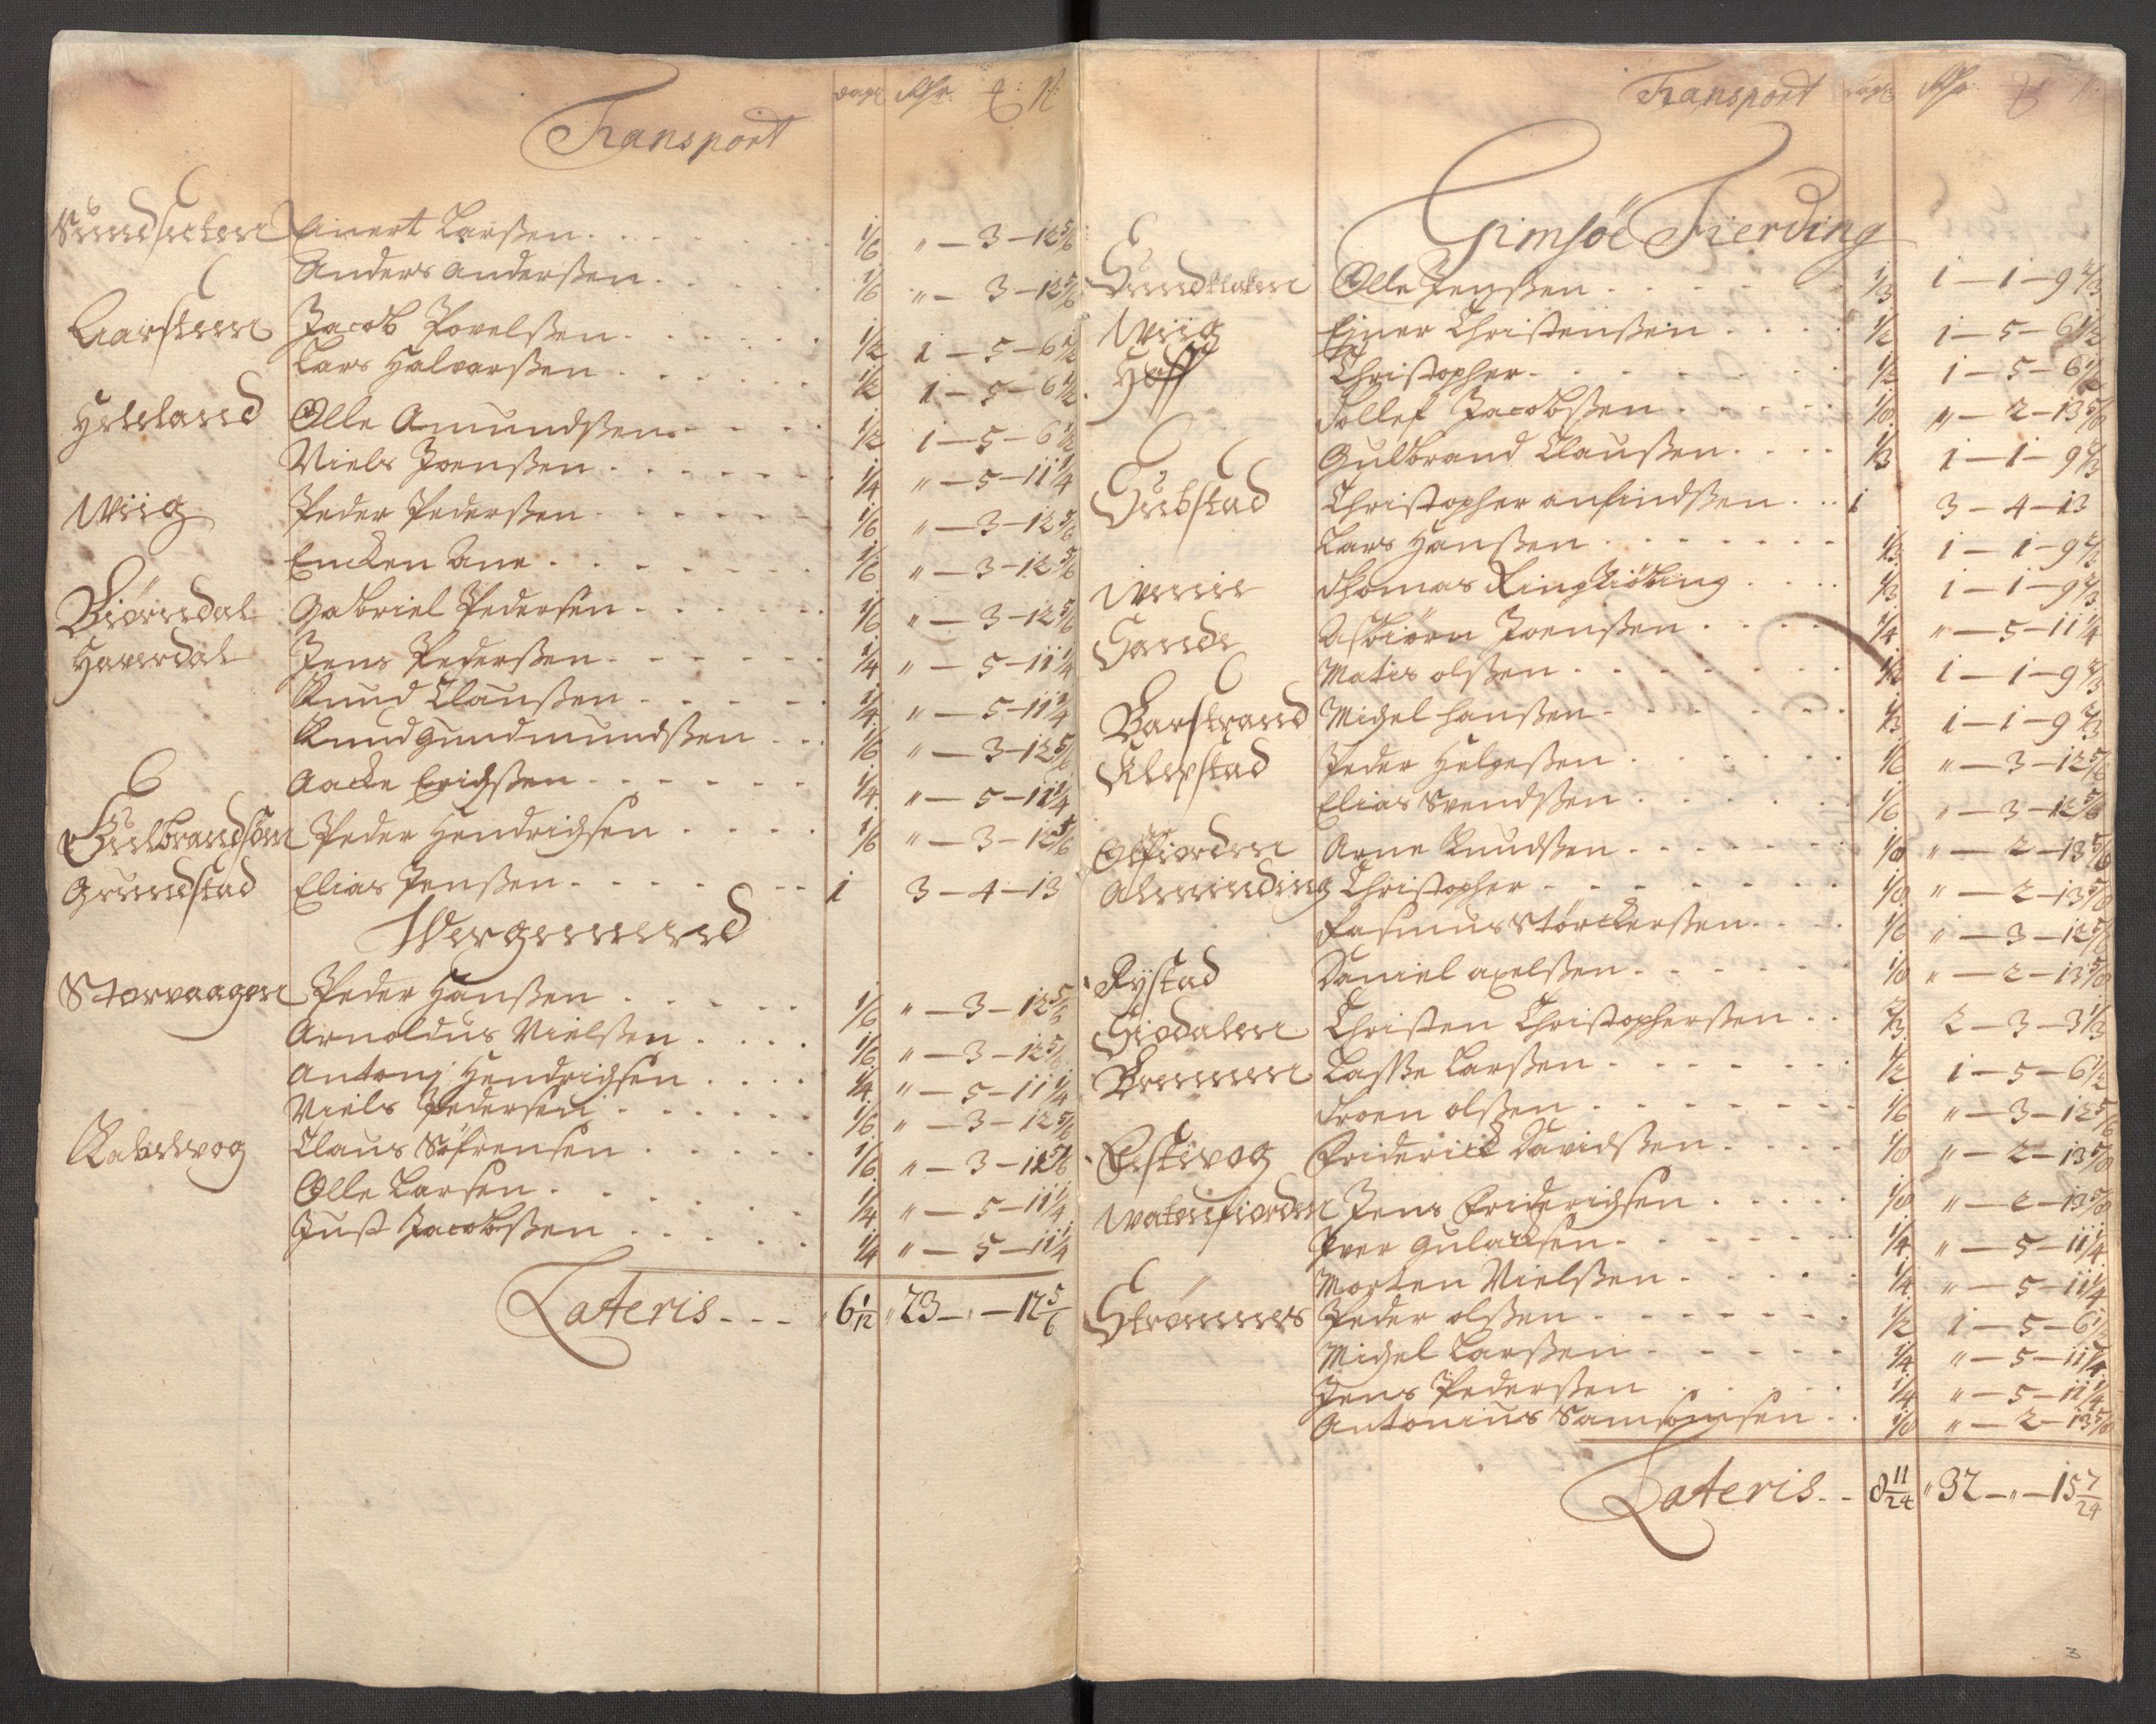 Transport
Sundsetten Einert Larßen 1/6 " — 3 — 12 5/6
Anders Anderßen 1/6 " — 3 — 12 5/6
Jacob Povelßen 1/2 1 — 5 — 6 1/2
Lars Halvorßen 1/2 1 — 5 — 6 1/2
Helland Olle Amundßen 1/2 1 — 5 — 6 1/2
Niels Joenßen 1/4 " — 5 — 11 1/4
Wiig Peder Pederßen 1/6 " — 3 — 12 5/6
Encken Ane 1/6 " — 3 — 12 5/6
Biørndal Gabriel Pedersen 1/6 " — 3 — 12 5/6
Haverdal Jens Pederßen 1/4 " — 5 — 11 1/4
Knud Claußen 1/4 " — 5 — 11 1/4
Knud Gundmundßen 1/6 " — 3 — 12 5/6
Aacke Erichßen 1/4 " — 5 — 11 1/4
Peder Hendrichsen 1/6 " — 3 — 12 5/6
Grundstad Elias Jenßen 1 3 — 4 — 13
Storvaagen Peder Hanßen 1/6 " — 3 — 12 5/6
Arnoldus Nielßen 1/6 " — 3 — 12 5/6
Antonj Hendrichsen 1/4 " — 5 — 11 1/4
Niels Pedersen 1/6 " — 3 — 12 5/6
Kabelvog Claus Søfrensen 1/6 " — 3 — 12 5/6
Olle Larsen 1/4 " — 5 — 11 1/4
Just Jacobßen 1/4 " — 5 — 11 1/4
Lateris 6 1/12 " 23 — " — 12 5/6
Transport
Gimsöe Fierding
Sundklaken Olle Jenßen 1/3 1 — 1 — 9 2/3
Wiig Ejner Christenßen 1/2 1 — 5 — 6 1/2
Hoff Christopher 1/2 1 — 5 — 6 1/2
Tollef Jacobßen 1/8 " — 2 — 13 5/8
Gulbrand Claußen 1/3 1 — 1 — 9 2/3
Christopher Anfindßen 1 3 — 4 — 13
Lars Hanßen 1/3 1 — 1 — 9 2/3
Thomas Ringkiöbing 1/3 1 — 1 — 9 2/3
Sande Asbiørn Joenßen 1/4 " — 5 — 11 1/4
Matis Olßen 1/3 1 — 1 — 9 2/3
Barstrand Michel Hanßen 1/3 1 — 1 — 9 2/3
Klepstad Peder Helgeßen 1/6 " — 3 — 12 5/6
Elias Svendßen 1/6 " — 3 — 12 5/6
Arne Knudßen 1/8 " — 2 — 13 5/8
Alminding Christopher 1/8 " — 2 — 13 5/8
Rasmus Størckerßen 1/6 " — 3 — 12 5/6
Rystad Daniel Axelßen 1/8 " — 2 — 13 5/8
Christen Christopherßen 2/3 2 — 3 — 3 1/3
Brennen Laße Larßen 1/2 1 — 5 — 6 1/2
Troen Olßen 1/6 " — 3 — 12 5/6
Friderick Davidßen 1/8 " — 2 — 13 5/8
Watenfiorden Jens Friderichsen 1/8 " — 2 — 13 5/8
Iver Gulacksen 1/4 " — 5 — 11 1/4
Morten Nielßen 1/4 " — 5 — 11 1/4
Strømnes Peder Olßen 1/2 1 — 5 — 6 1/2
Michel Larßen 1/4 " — 5 — 11 1/4
Jens Pederßen 1/4 " — 5 — 11 1/4
Antonius Samsonsen 1/8 " — 2 — 13 5/8
Lateris 8 11/24 " 32 — " — 15 7/24
3